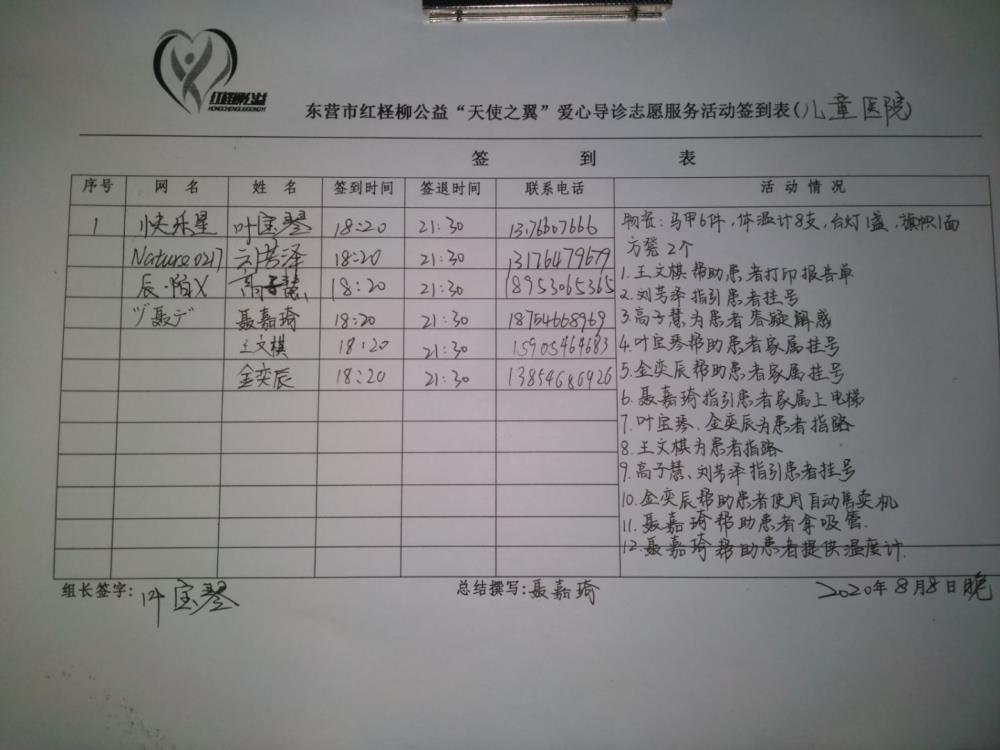 红柽柳公益
HONGCHENGLIUGONGYI
东营市红柽柳公益“天使之翼”爱心导诊志愿服务活动签到表(儿童医院)
签 到 表
序号 网 名 姓 名 签到时间 签退时间 联系电话 活 动 情 况
1 快乐星 叶宝琴 18:20 21:30
Nature0217 刘芳泽 18:20 21:30 13176479679
辰·陌X 高子慧 18:20 21:30 18953065365
聂嘉琦 18:20 21:30 18754668969
王文棋 18:20 21:30 15905464683
金奕辰 18:20 21:30 13854686926
物资:马甲6件,体温计8支,台灯1盏,旗帜1面
方凳2个
1.王文棋帮助患者打印报告单
2.刘芳泽指引患者挂号
3.高子慧为患者答疑解惑
4.叶宝琴帮助患者家属挂号
5.金奕辰帮助患者家属挂号
6.聂嘉琦指引患者家属上电梯
7.叶宝琴、金奕辰为患者指路
8.王文棋为患者指路
9.高子慧、刘芳泽指引患者挂号
10.金奕辰帮助患者使用自动售卖机
11.聂嘉琦帮助患者拿吸管.
12.聂嘉琦帮助患者提供温度计.
组长签字:叶宝琴 总结撰写:聂嘉琦 2020年8月8日晚